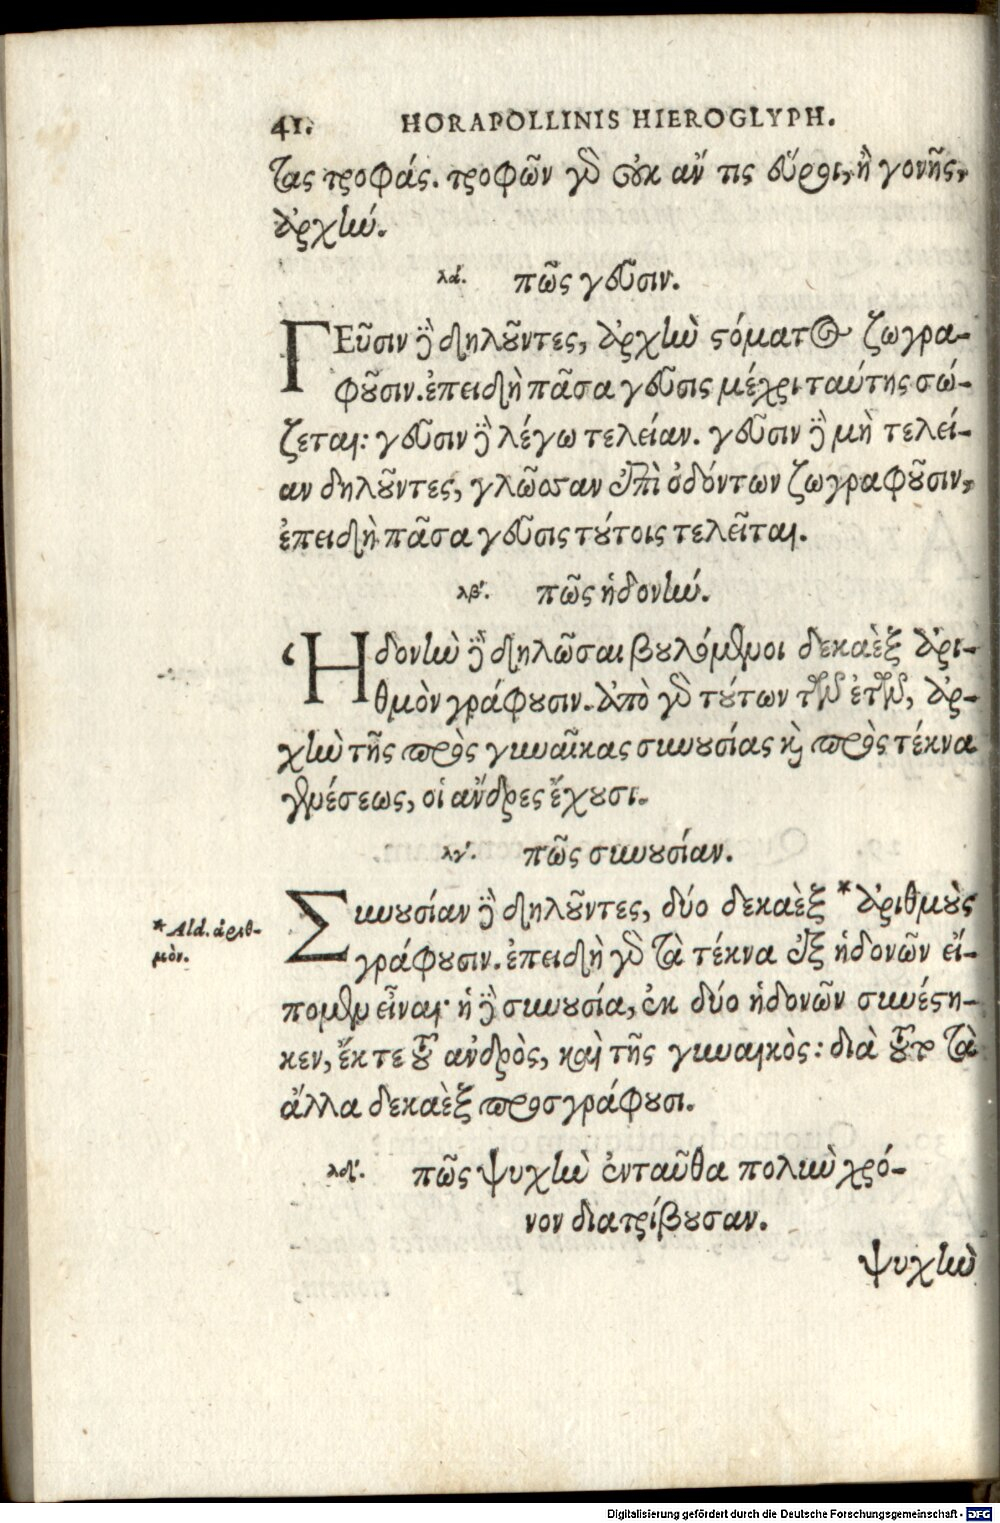 41. HORAPOLLINIS HIEROGLYPH.
τας τροφάς. τροφῶν γὸ οὐκ ἄν τις εὕροι, ἢ γονῆς,
ἀρχήν.
λα´. πῶς γεῦσιν.
ΓΕῦσιν ἢ δηλοῦντες, ἀρχὴν στόματος ζωγρα-
φοῦσιν. ἐπειδὴ πᾶσα γεῦσις μέχρι ταύτης σώ-
ζεται: γεῦσιν ἢ λέγω τελείαν. γεῦσιν ἢ μὴ τελεί-
αν δηλοῦντες, γλῶσσαν ἐπὶ ὀδόντων ζωγραφοῦσιν,
ἐπειδὴ πᾶσα γεῦσις τούτοις τελεῖται.
λβ´. πῶς ἡδονήν.
Ἡδονὴν ἢ δηλῶσαι βουλόμενοι δεκαὲξ ἀρι-
θμὸν γράφουσιν. ἀπὸ γὸ τούτων τῶν ἐτῶν, ἀρ-
χὴν τῆς πρὸς γυναῖκας συνουσίας καὶ πρὸς τέκνα
γενέσεως, οἱ ἄνδρες ἔχουσι.
λγ´. πῶς συνουσίαν.
Συνουσίαν ἢ δηλοῦντες, δύο δεκαὲξ * ἀριθμοὺς
* Ald. ἀριθ-
μὸν.
γράφουσιν. ἐπειδὴ γὸ τὰ τέκνα ἐξ ἡδονῶν εἴ-
πομεν εἶναι· ἡ ἢ συνουσία, ἐκ δύο ἡδονῶν συνέστη-
κεν, ἔκ τε τοῦ ἀνδρὸς, καὶ τῆς γυναικὸς: διὰ τοῦτο τὰ
ἄλλα δεκαὲξ προσγράφουσι.
λδ´. πῶς ψυχὴν ἐνταῦθα πολὺν χρό-
νον διατρίβουσαν.
ψυχὴν
Digitalisierung gefördert durch die Deutsche Forschungsgemeinschaft - DFG